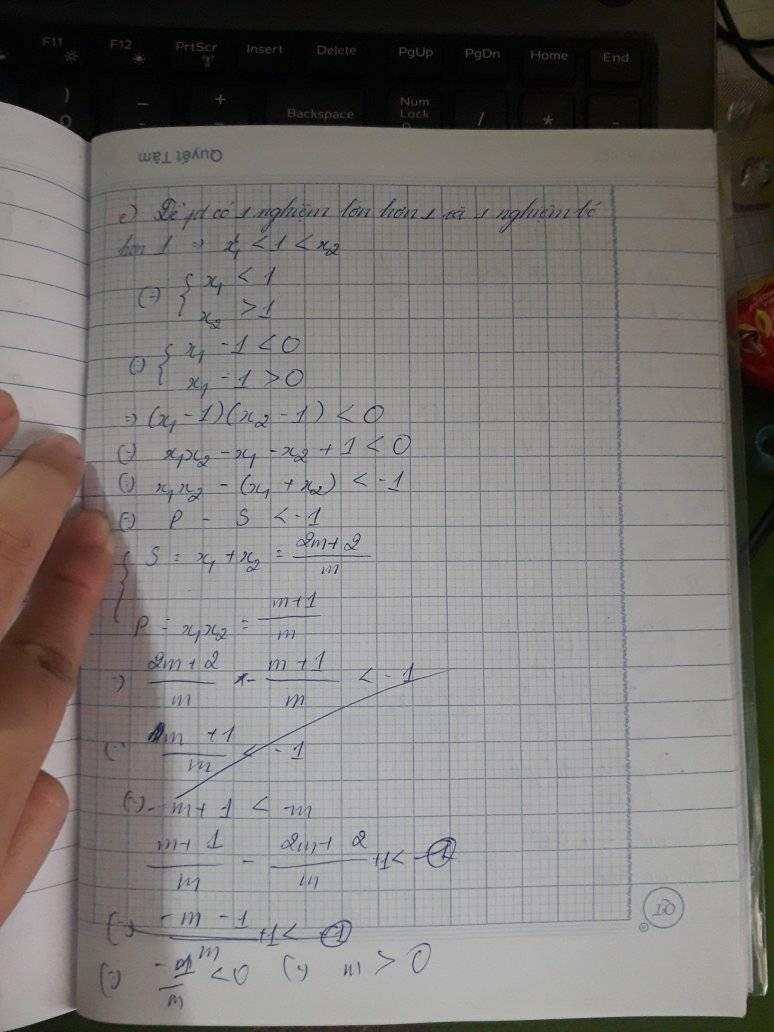 F11 F12 PrtScr Insert Delete PgUp PgDn Home End
) _ + Backspace Num Lock / * -
0 -
Quyết Tâm
e) Để pt có 1 nghiệm lớn hơn 1 và 1 nghiệm bé
hơn 1 => x₁ < 1 < x₂
(=) { x₁ < 1
x₂ > 1
(=) { x₁ - 1 < 0
x₁ - 1 > 0
=> (x₁ - 1)(x₂ - 1) < 0
(=) x₁x₂ - x₁ - x₂ + 1 < 0
(=) x₁x₂ - (x₁ + x₂) < -1
(=) P - S < -1
{ S = x₁ + x₂ = (2m+2)/m
P = x₁x₂ = (m+1)/m
(2m+2)/m - (m+1)/m < -1
(m+1)/m < -1
(=) m+1 < -m
(m+1)/m - (2m+2)/m +1 <
(=) (-m-1)/m +1
(=) > 0 (=) m > 0